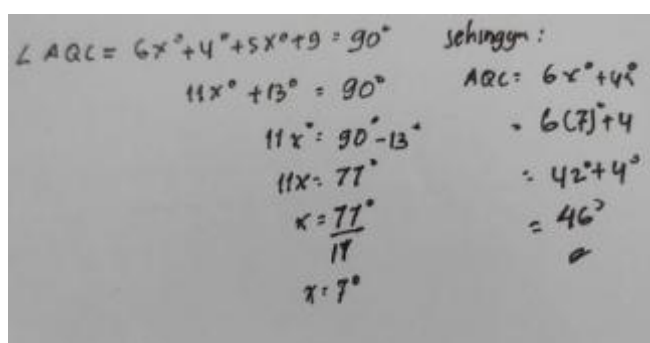 ∠ AQC = 6x° + 4° + 5x° + 9 = 90°
11x° + 13° = 90°
11x° = 90° - 13°
11x = 77°
x = 77°
11
x = 7°
sehingga :
AQC = 6x° + 4°
= 6(7)° + 4
= 42° + 4°
= 46°